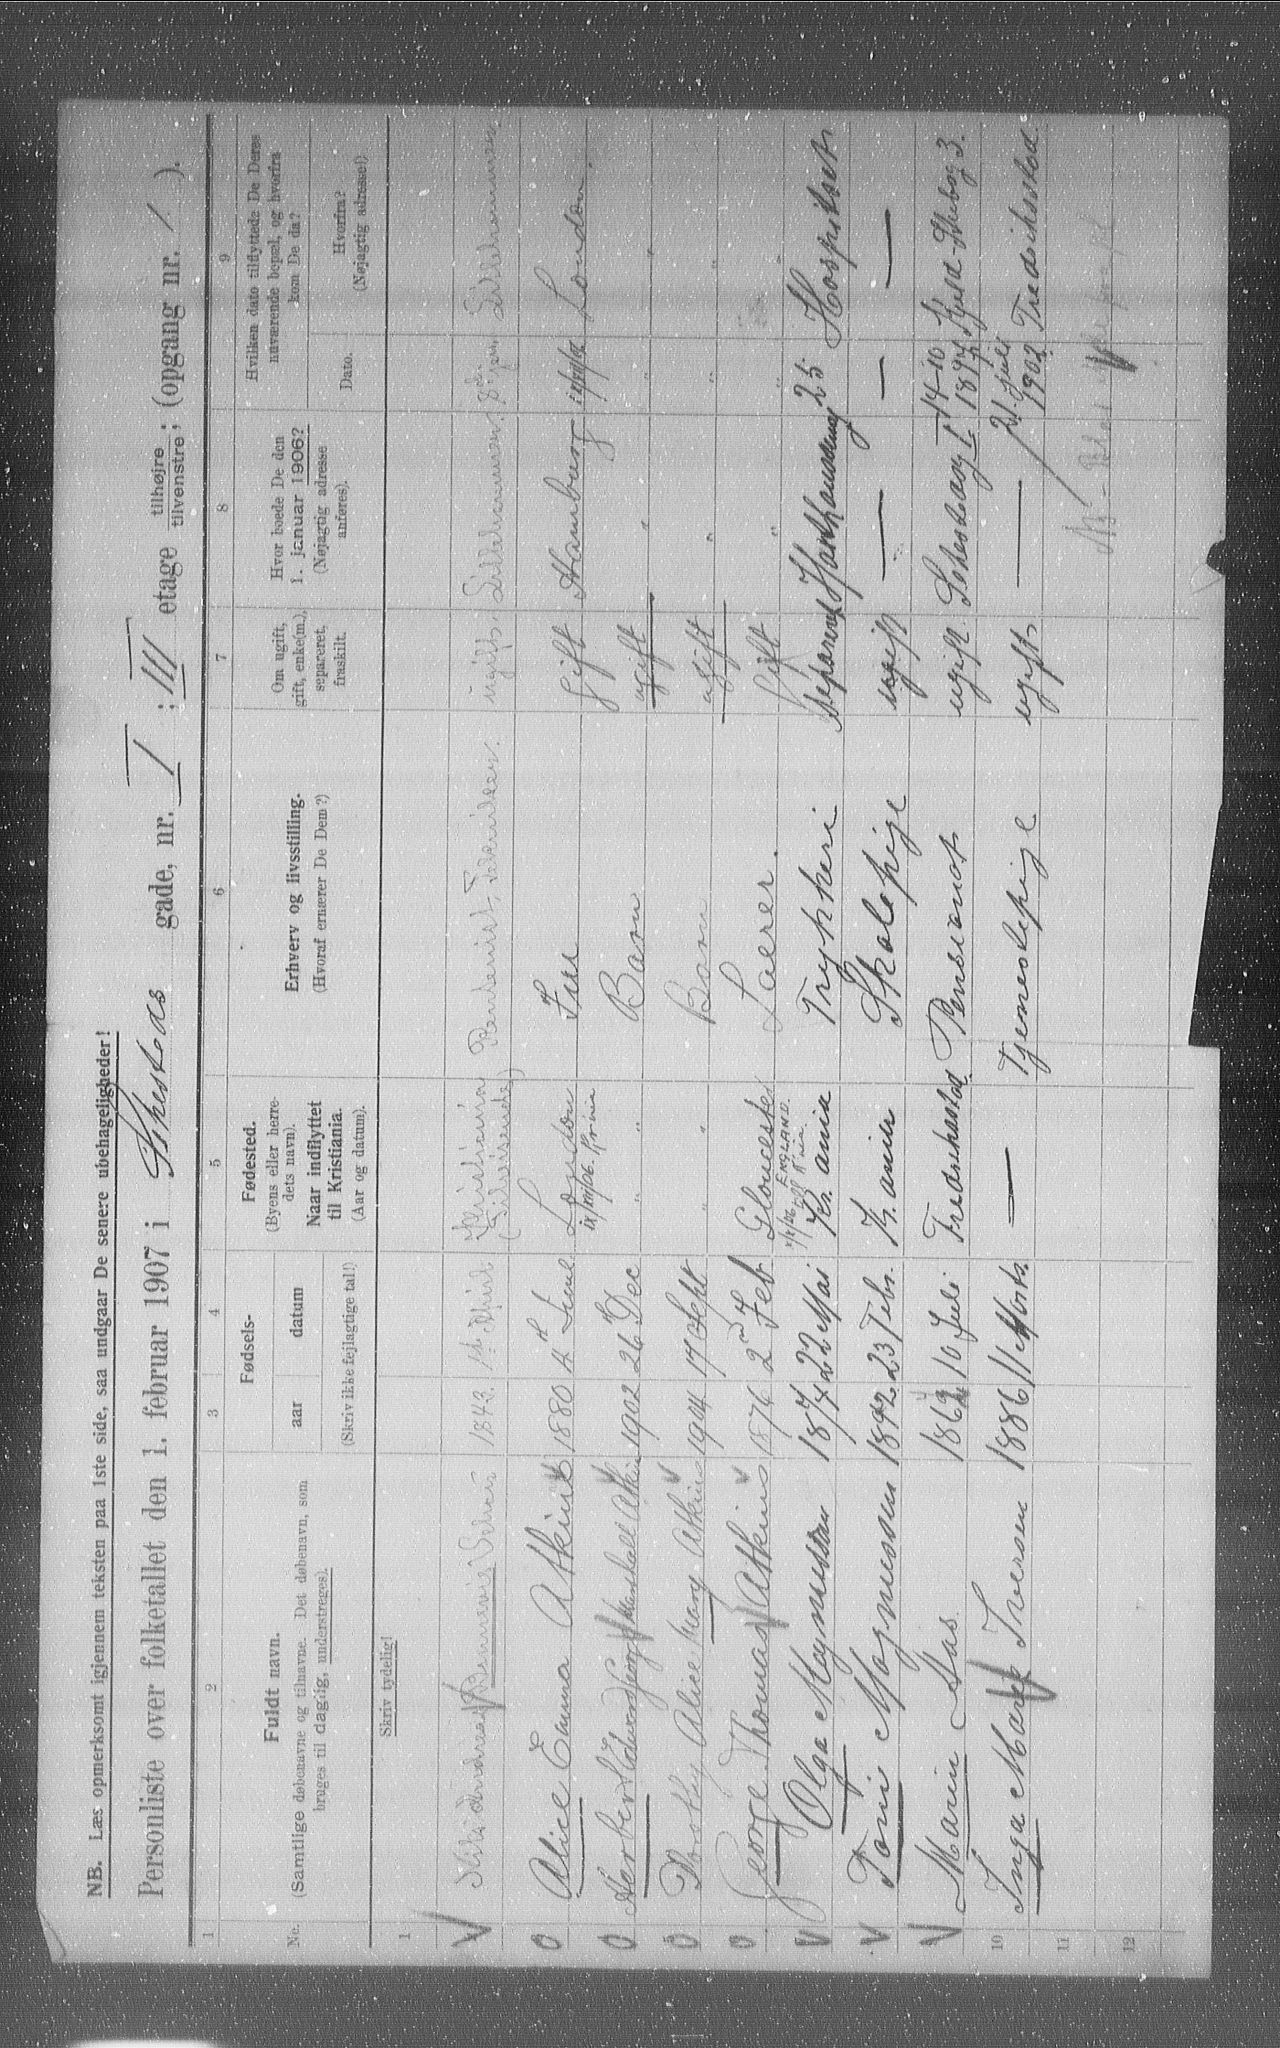 NB. Læs opmerksomt igjennem teksten paa 1ste side, saa undgaar De senere ubehageligheder!
Personliste over folketallet den 1. februar 1907 i gade, nr. I ; III etage tilhøjre tilvenstre ; (opgang nr. / ).
1 2 3 4 5 6 7 8 9
No.
Fuldt navn.
(Samtlige døbenavne og tilnavne. Det døbenavn, som
bruges til daglig, understreges).
Fødsels-
aar datum
(Skriv ikke fejlagtige tal!)
Fødested.
(Byens eller herre-
dets navn).
Naar indflyttet
til Kristiania.
(Aar og datum).
Erhverv og livsstilling.
(Hvoraf ernærer De Dem?)
Om ugift,
gift, enke(m.),
separeret,
fraskilt.
Hvor boede De den
1. januar 1906?
(Nøjagtig adresse
anføres).
Hvilken dato tilflyttede De Deres
nuværende bopæl, og hvorfra
kom De da?
Dato.
Hvorfra?
(Nøjagtig adresse!)
Skriv tydelig!
1
1843 1ste April Kristiania ugift. Lillehammer. Lillehammer.
Alice Emma Atkins 1880 4th June London Fru Gift Hamburg London.
Herbert Edward George Marshall Atkins 1902 26 Dec " Barn ugift " " "
Dorothy Alice Mary Atkins 1904 17 Sept " Barn ugift " " "
George Thomas Atkins 1876 2nd Feb Gloucester ENGLAND. Lærer. Gift " " "
Olga Magnussen 1874 22 Mai Kr.ania Trykkeri separeret 25 Hospitset
Toni Magnussen 1892 23 Febr. Kr.ania Skolepige ugift — — —
Marin Aas 10 Juli Fredrikstad. Pensionat ugift. 14-10 1894 3.
10 Inga Marie Iversen 1886 11 Marts — Tjenestepige ugift — 21 juli 1902 Fredrikstad
11
12